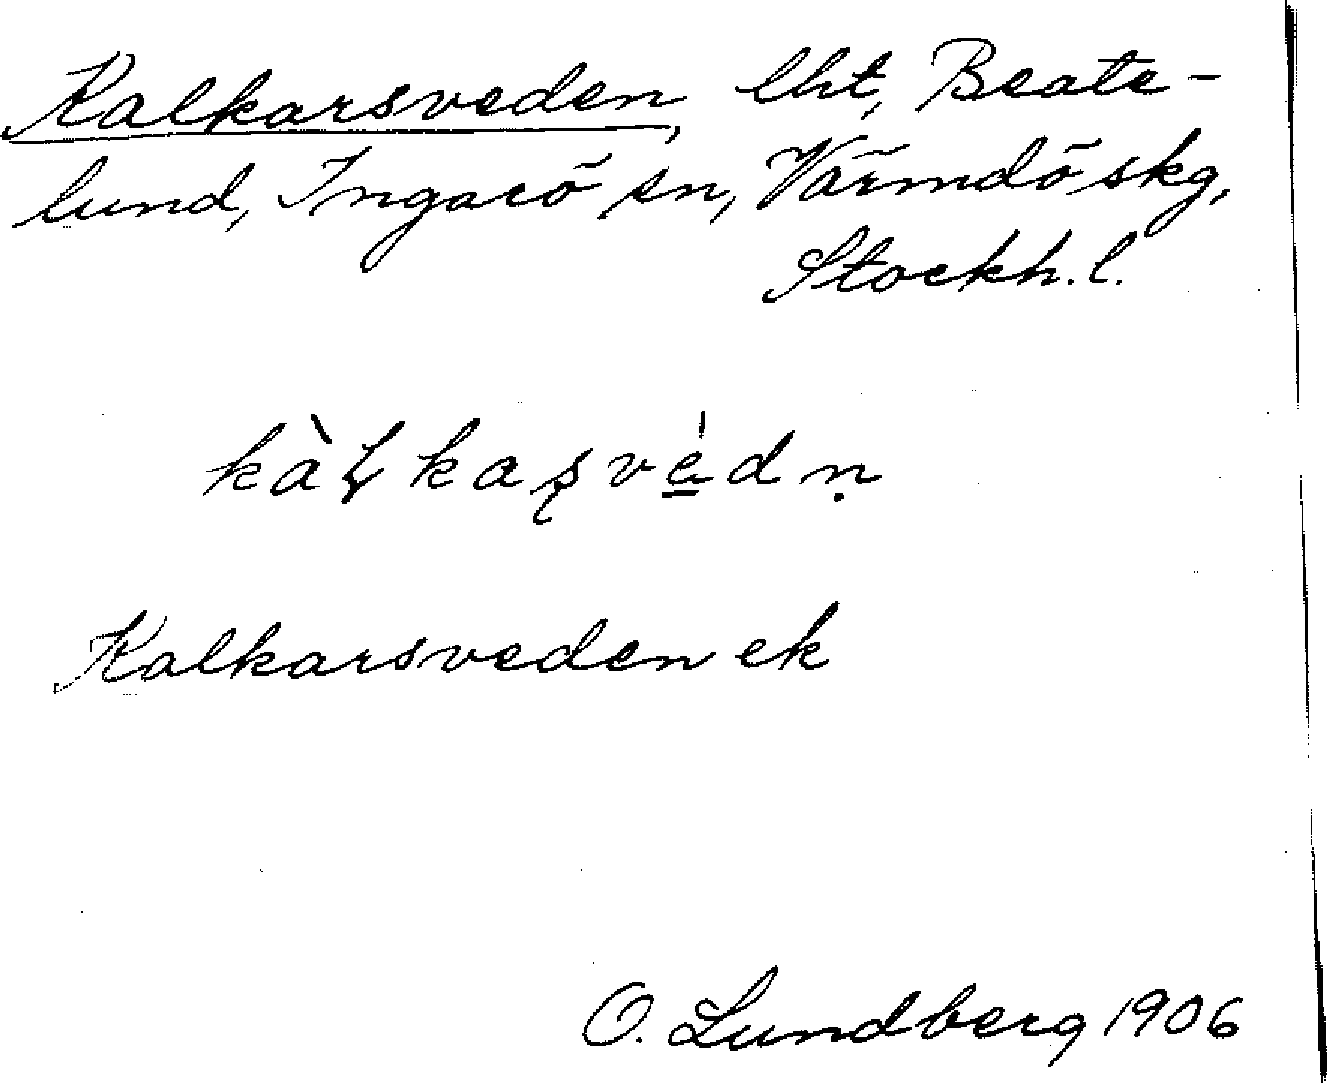 Kalkarsveden, lht, Beate-
lund, Ingarö sn, Värmdö skg,
Stockh. l.
kàł̣kaşvèdṇ
Kalkarsveden ek
O. Lundberg 1906